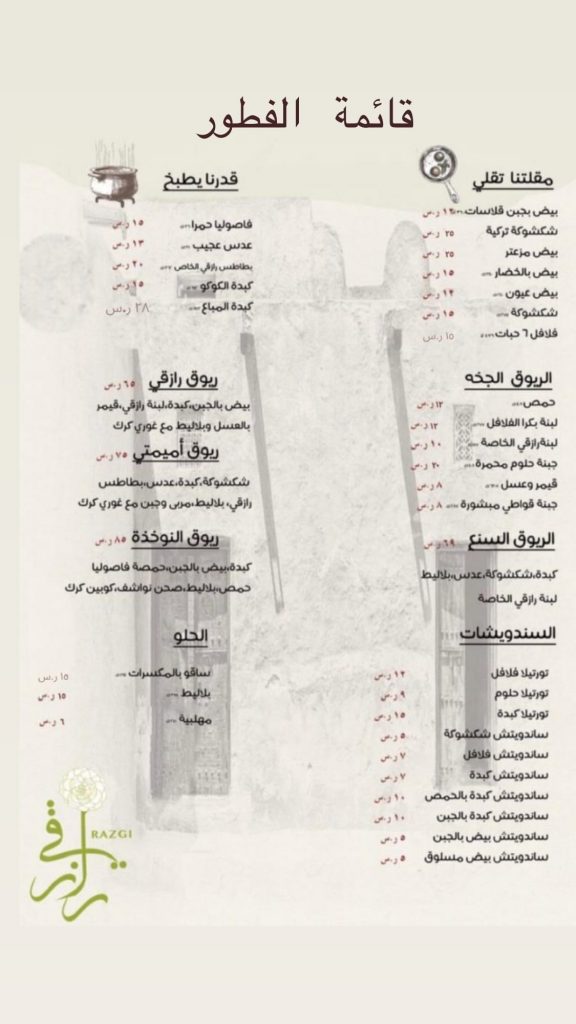 قائمة الفطور
مقلتنا تقلي
بيض بجبن قلاسات ر.س
شكشوكة تركية ٢٥ ر.س
بيض مزعتر ٢٥ ر.س
بيض بالخضار ١٥ ر.س
بيض عيون ١٢ ر.س
شكشوكة ١٥ ر.س
فلافل ٦ حبات ١٥ ر.س
الريوق الجخه
حمص ١٢ ر.س
لبنة بكرا الفلافل ١٢ ر.س
لبنة رازقي الخاصة ١٠ ر.س
جبنة حلوم محمرة ٢٠ ر.س
قيمر وعسل ٨ ر.س
جبنة قواطي مبشورة ٨ ر.س
الريوق السنع ٦٩ ر.س
كبدة،شكشوكة،عدس،بلاليط
لبنة رازقي الخاصة
السندويشات
تورتيلا فلافل ١٢ ر.س
تورتيلا حلوم ٩ ر.س
تورتيلا كبدة ١٥ ر.س
ساندويتش شكشوكة ٥ ر.س
ساندويتش فلافل ٧ ر.س
ساندويتش كبدة ٧ ر.س
ساندويتش كبدة بالحمص ١٠ ر.س
ساندويتش كبدة بالجبن ١٠ ر.س
ساندويتش بيض بالجبن ٥ ر.س
ساندويتش بيض مسلوق ٥ ر.س
قدرنا يطبخ
فاصوليا حمرا ١٥ ر.س
عدس عجيب ١٣ ر.س
بطاطس رازقي الخاص ٢٠ ر.س
كبدة الكوكو ٢٥ ر.س
كبدة المباع ٢٨ ر.س
ريوق رازقي ٦٥ ر.س
بيض بالجبن،كبدة،لبنة رازقي،قيمر
بالعسل وبلاليط مع غوري كرك
ريوق أميمتي ٧٥ ر.س
شكشوكة،كبدة،عدس،بطاطس
رازقي، بلاليط،مربى وجبن مع غوري كرك
ريوق النوخذة ٨٥ ر.س
كبدة،بيض بالجبن،حمصة فاصوليا
حمص،بلاليط،صحن نواشف،كوبين كرك
الحلو
ساقو بالمكسرات ١٥ ر.س
بلاليط ١٥ ر.س
مهلبية ٦ ر.س
رازقي
RAZGI